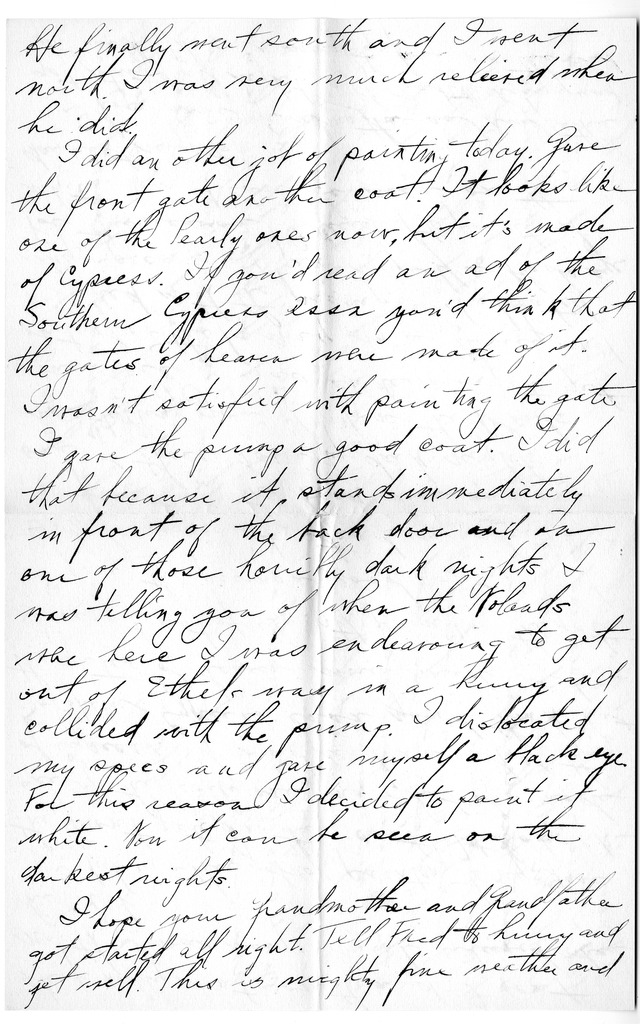 He finally went south and I went
north. I was very much relieved when
he did.
I did an other job of painting today. Gave
the front gate another coat. It looks like
one of the Pearly ones now, but it's made
of Cypress. If you'd read an ad of the
Southern Cypress Assn you'd think that
the gates of heaven were made of it.
I wasn't satisfied with painting the gate
I gave the pump a good coat. I did
that because it stands immediately
in front of the back door and on
one of those horribly dark nights I
was telling you of when the Nolands
were here I was endeavoring to get
out of Ethel's way in a hurry and
collided with the pump. I dislocated
my specs and gave myself a black eye.
For this reason I decided to paint it
white. Now it can be seen on the
darkest nights.
I hope your grandmother and Grandfather
got started all right. Tell Fred to hurry and
get well. This is mighty fine weather and